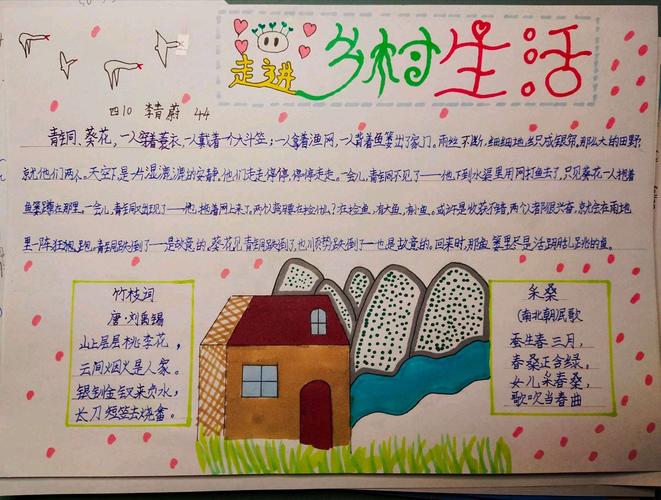 走进 乡村生活
四10 李青蔚 44
青铜、葵花,一人穿着蓑衣,一人戴着一个大斗笠;一人拿着渔网,一人背着鱼篓出了家门。雨丝不断,细细地丝织成银帘,那么大的田野,
就他们两个人。天空下是一片湿漉漉的安静,他们走走停停,停停走走。一会儿,青铜不见了——他下到水渠里用网打鱼去了,只见葵花一人抱着
鱼篓蹲在那里。一会儿,青铜又出现了——他抱着网上来了,两个人
在捡鱼,有大鱼,有小鱼。或许是收获不错,两个人都很兴奋,就会在雨地
里一阵狂
青铜跌倒了——是故意的,葵花见青铜跌倒了,也顺势跌倒了——也是故意的。回来时,那鱼篓里尽是活蹦乱跳的鱼。
竹枝词
唐·刘禹锡
山上层层桃李花,
云间烟火是人家。
银钏金钗来负水,
长刀短笠去烧畬。
采桑
(南北朝民歌
蚕生春三月,
春桑正含绿,
女儿采春桑,
歌吹当春曲